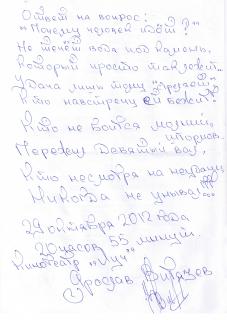 Ответ на вопрос:
"Почему человек идёт?"
Не течёт вода под камень,
Который просто так лежит...
Удача лишь тому "врезает"
Кто навстречу ей бежит!
Кто не боится молний, штормов.
Пережил Девятый вал,
Кто несмотря на неудачи
Никогда не унывал!!!...
29 октября 2012 года
20 часов 55 минут.
Кинотеатр "Луч"
Ярослав